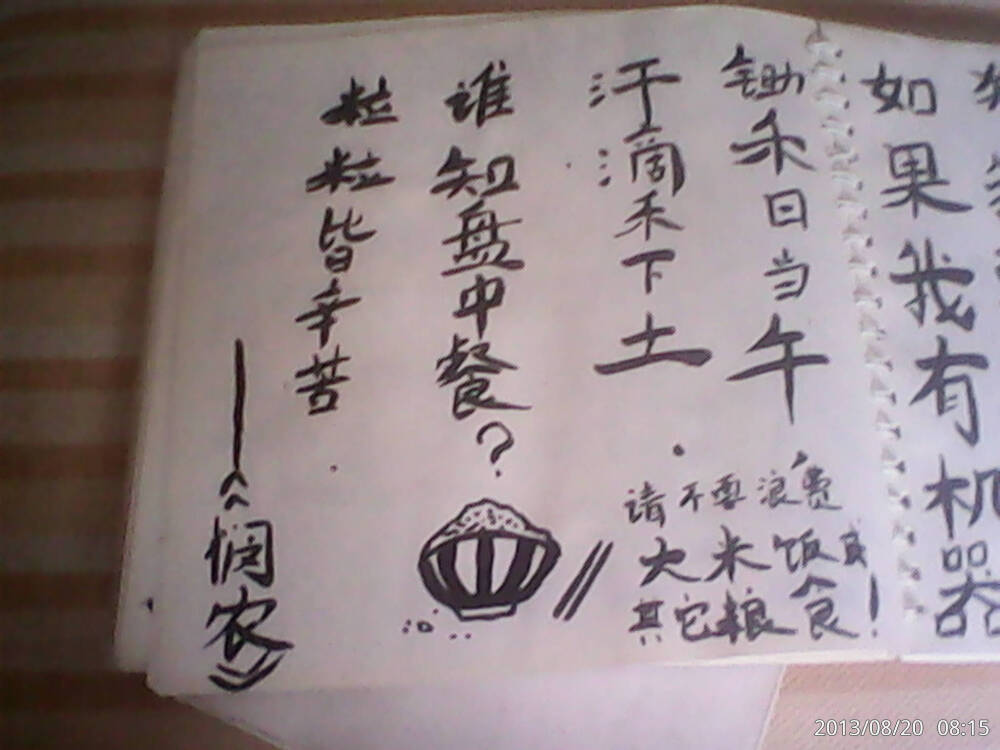 如果我有机器
锄禾日当午
汗滴禾下土.
谁知盘中餐?
粒粒皆辛苦.
——《悯农》
请不要浪费
大米饭和
其它粮食!
2013/08/20 08:15